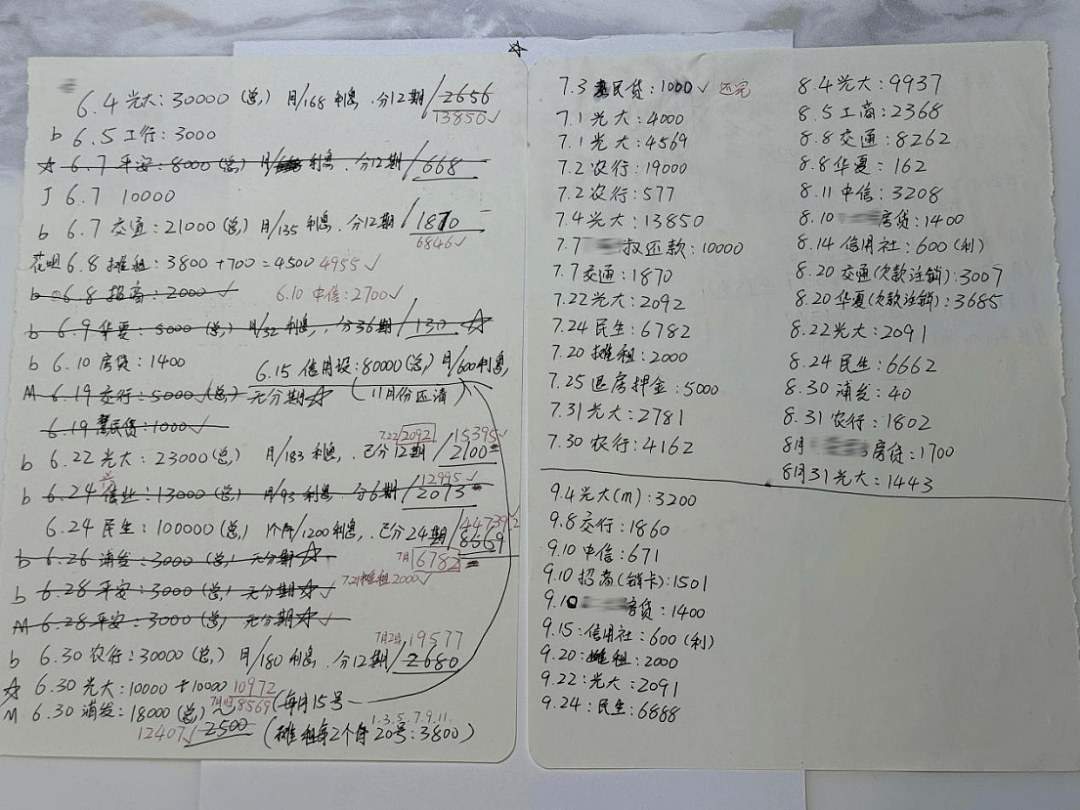 6.4 光大:30000 (总) 月/168 利息.分12期/2656
13850✓
b 6.5 工行:3000
☆ 6.7 平安:8000 (总) 月/ 利息.分12期/668
J 6.7 10000
b 6.7 交通:21000 (总) 月/135 利息.分12期/1870
6846✓
花呗 6.8 摊租:3800+700=4500 4955✓
b 6.8 招商:2000 ✓ 6.10 中信:2700✓
b 6.9 华夏:5000 (总) 月/32 利息.分36期/130.☆
b 6.10 房贷:1400 6.15 信用设:80000(总) 月/600利息
M 6.19 交行:5000(总) 无分期☆ (11月份还清)
6.19 惠民贷:1000✓
7.22 2092 15395✓
b 6.22 光大:23000(总) 月/183 利息.已分12期/2100
12995✓
b 6.24 兴业:13000(总) 月/93 利息.分6期/2073
44739
6.24 民生:100000(总) 1个月/1200利息.已分24期/8669
7月 6782
b 6.26 浦发:3000(总) 无分期☆
7.21摊租2000✓
b 6.28 平安:3000(总) 无分期☆✓
M 6.28 平安:3000(总) 无分期☆✓
7月2号,19577
b 6.30 农行:30000(总) 月/180 利息.分12期/2680
☆ 6.30 光大:10000+10000 10972
M 6.30 浦发:18000(总) 7月1号8569 (每月15号
1.3.5.7.9.11.
12407✓ 2500 (摊租每2个月20号:3800)
☆
7.3 惠民贷:1000✓ 还完
7.1 光大:4000
7.1 光大:4569
7.2 农行:19000
7.2 农行:577
7.4 光大:13850
7.7 叔还款:10000
7.7 交通:1870
7.22 光大:2092
7.24 民生:6782
7.20 摊租:2000
7.25 退房押金:5000
7.31 光大:2781
7.30 农行:4162
8.4 光大:9937
8.5 工商:2368
8.8 交通:8262
8.8 华夏:162
8.11 中信:3208
8.10 房贷:1400
8.14 信用社:600(利)
8.20 交通(欠款注销):3007
8.20 华夏(欠款注销):3685
8.22 光大:2091
8.24 民生:6662
8.30 浦发:40
8.31 农行:1802
8月 房贷:1700
8月31 光大:1443
9.4 光大(m):3200
9.8 交行:1860
9.10 中信:671
9.10 招商(销卡):1501
9.10 房贷:1400
9.15:信用社:600(利)
9.20:摊租:2000
9.22:光大:2091
9.24:民生:6888